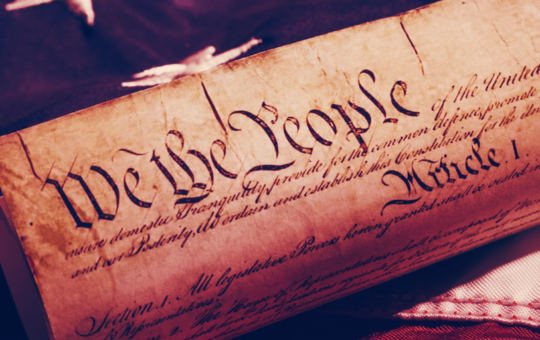 We the People of the United
insure domestic Tranquility, provide for the common defence, promote
and our Posterity, do ordain and establish this Constitution for the
Article I.
Section 1. All legislative Powers herein granted shall be vested
of Representatives.